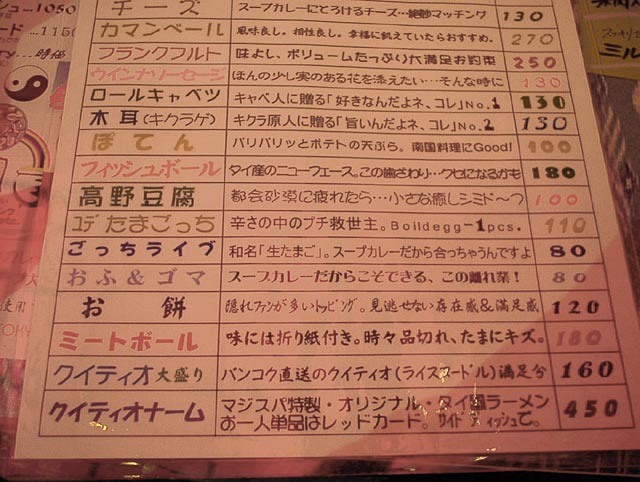 シュ…1050
チーズ スープカレーにとろけるチーズ…絶妙マッチング 130
カマンベール 風味良し。相性良し。幸福に飢えていたらおすすめ。 270
フランクフルト 味よし、ボリュームたっぷり大満足お約束 250
ウインナソーセージ ほんの少し実のある花を添えたい…そんな時に 130
ロールキャベツ キャベ人に贈る「好きなんだよネ、コレ」No.1 130
木耳(キクラゲ) キクラ原人に贈る「旨いんだよネ、コレ」No.2 130
ぽてん パリパリッとポテトの天ぷら。南国料理にGood! 100
フィッシュボール タイ産のニューフェース。この歯ざわり…クセになるかも 180
高野豆腐 都会砂漠に疲れたら…小さな癒しシミド〜つ 100
ユデたまごっち 辛さの中のプチ救世主。Boildegg-1pcs. 110
ごっちライブ 和名「生たまご」。スープカレーだから合っちゃうんですよ 80
おふ&ゴマ スープカレーだからこそできる、この離れ業! 80
お餅 隠れファンが多いトッピング。見逃せない存在感&満足感 120
ミートボール 味には折り紙付き。時々品切れ、たまにキズ。 180
クイティオ大盛り バンコク直送のクイティオ(ライスヌードル)満足分 160
クイティオナーム マジスパ特製・オリジナル・タイ国ラーメン 450
お一人単品はレッドカード。サイドディッシュで。